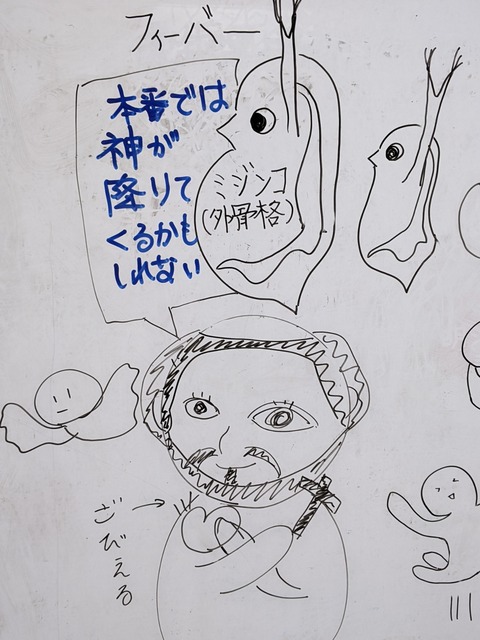 フィーバー
本番では
神が
降りて
くるかも
しれない
ミジンコ
(外骨格)
ざびえる